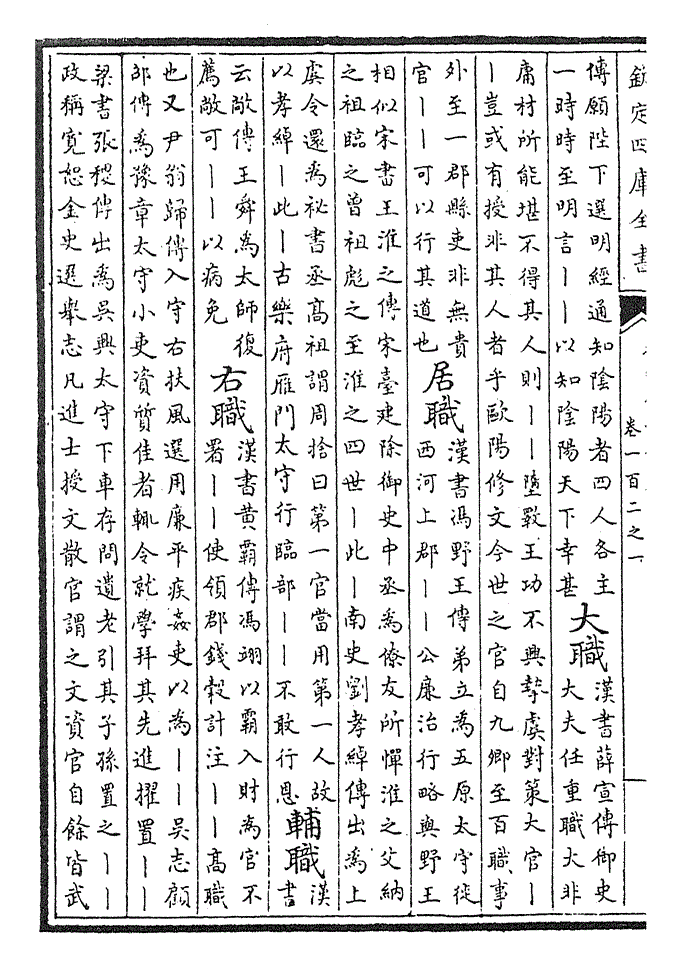 欽定四庫全書
卷一百二之一
傳願陛下選明經通知陰陽者四人各主
一時時至明言丨丨以知陰陽天下幸甚
大職
漢書薛宣傳御史
大夫任重職大非
庸材所能堪不得其人則丨丨墮斁王功不興摯虞對策大官丨
丨豈或有授非其人者乎歐陽修文今世之官自九卿至百職事
外至一郡縣吏非無貴
官丨丨可以行其道也
居職
漢書馮野王傳弟立為五原太守徙
西河上郡丨丨公廉治行略與野王
相似宋書王淮之傳宋臺建除御史中丞為僚友所憚淮之父納
之祖臨之曾祖彪之至淮之四世丨此丨南史劉孝綽傳出為上
虞令還為祕書丞高祖謂周捨曰第一官當用第一人故
以孝綽丨此丨古樂府雁門太守行臨部丨丨不敢行恩
輔職
漢
書
云敞傳王舜為太師復
薦敞可丨丨以病免
右職
漢書黄霸傳馮翊以霸入財為官不
署丨丨使領郡錢穀計注丨丨高職
也又尹翁歸傳入守右扶風選用廉平疾姦吏以為丨丨吳志顧
邵傳為豫章太守小吏資質佳者輒令就學拜其先進擢置丨丨
梁書張稷傳出為吳興太守下車存問遺老引其子孫置之丨丨
政稱寛恕金史選舉志凡進士授文散官謂之文資官自餘皆武